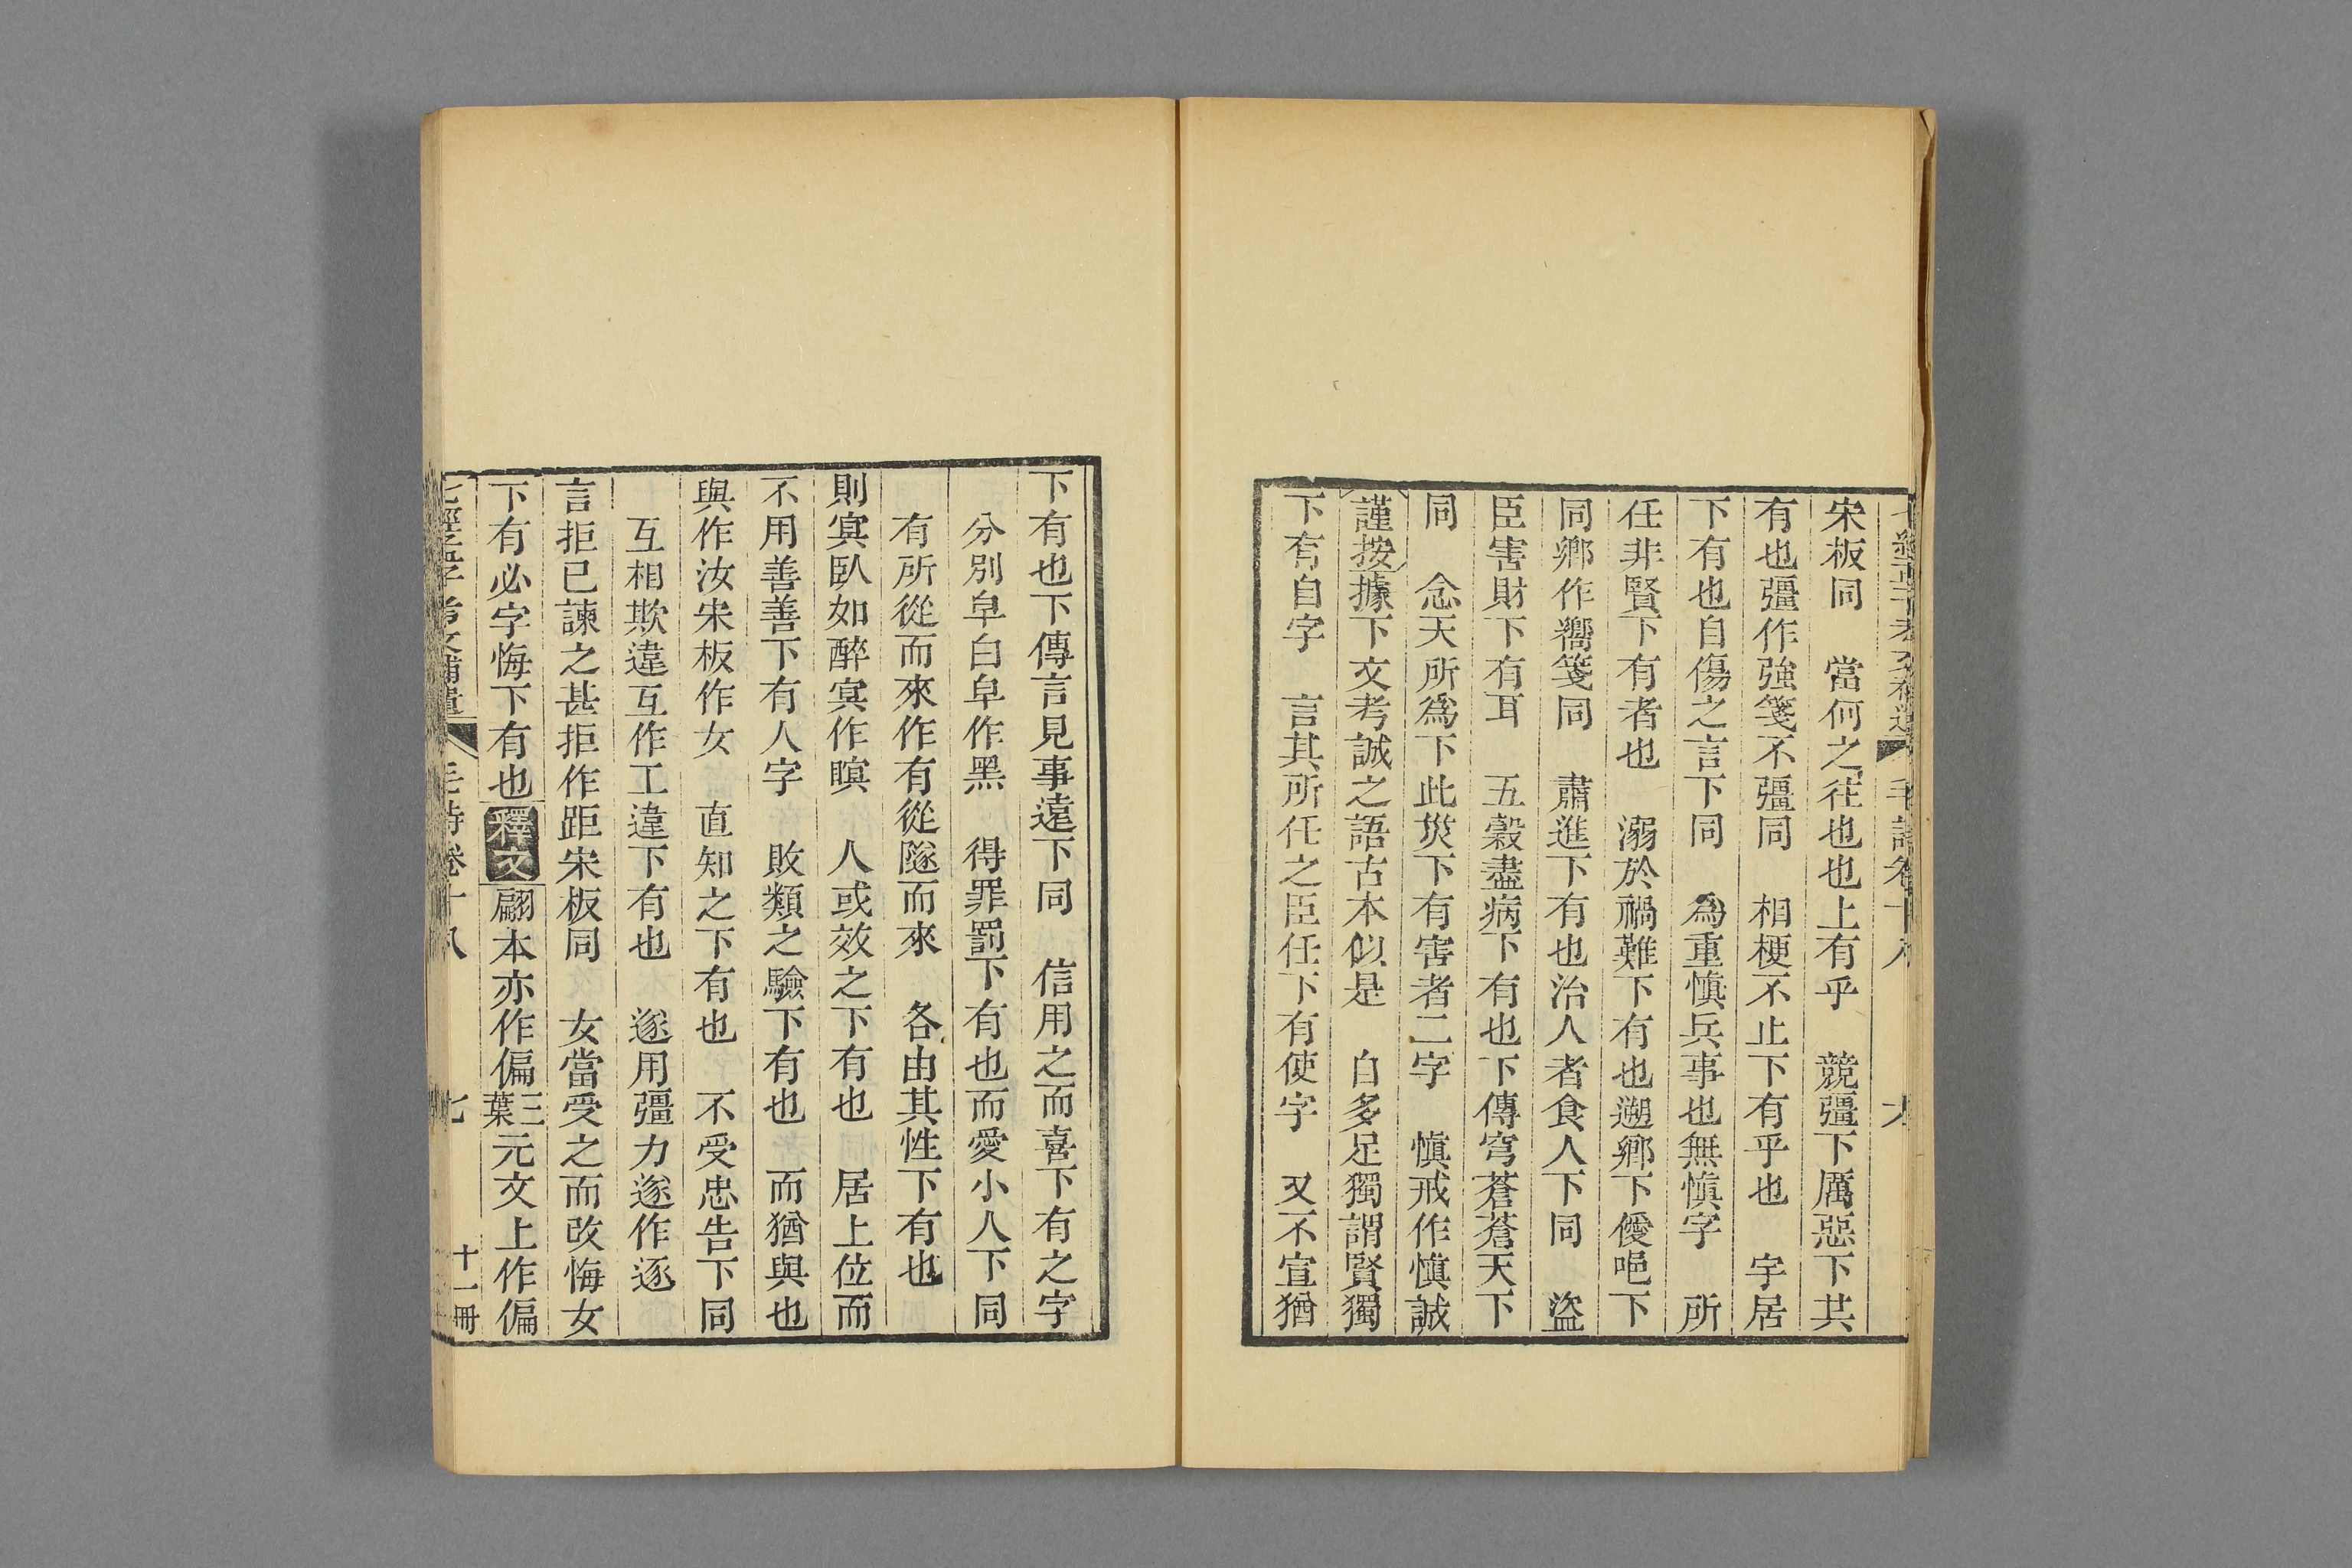 宋板同　當何之往也也上有乎　競彊下厲惡下其
有也彊作強箋不彊同　相梗不止下有乎也　字居
下有也自傷之言下同　為重慎兵事也無慎字　所
任非賢下有者也　溺於禍難下有也遡鄉下優唈下
同鄉作嚮箋同　肅進下有也治人者食人下同　盜
臣害財下有耳　五穀盡病下有也下傳穹蒼蒼天下
同　念天所為下此災下有害者二字　慎戒作慎誠
謹按據下文考誠之語古本似是　自多足獨謂賢獨
下有自字　言其所任之臣任下有使字　又不宣猶
下有也下傳言見事遠下同　信用之而喜下有之字
分別皁白皁作黑　得罪罰下有也而愛小人下同
有所從而來作有從隧而來　各由其性下有也
則寘臥如醉寘作瞑　人或效之下有也　居上位而
不用善善下有人字　敗類之驗下有也　而猶與也
與作汝宋板作女　直知之下有也　不受忠告下同
互相欺違互作工違下有也　遂用彊力遂作逐
言拒已諫之甚拒作距宋板同　女當受之而改悔女
下有必字悔下有也釋文翩本亦作偏三葉元文上作偏
七經孟子考文補遺　毛詩卷十八　七　十一冊